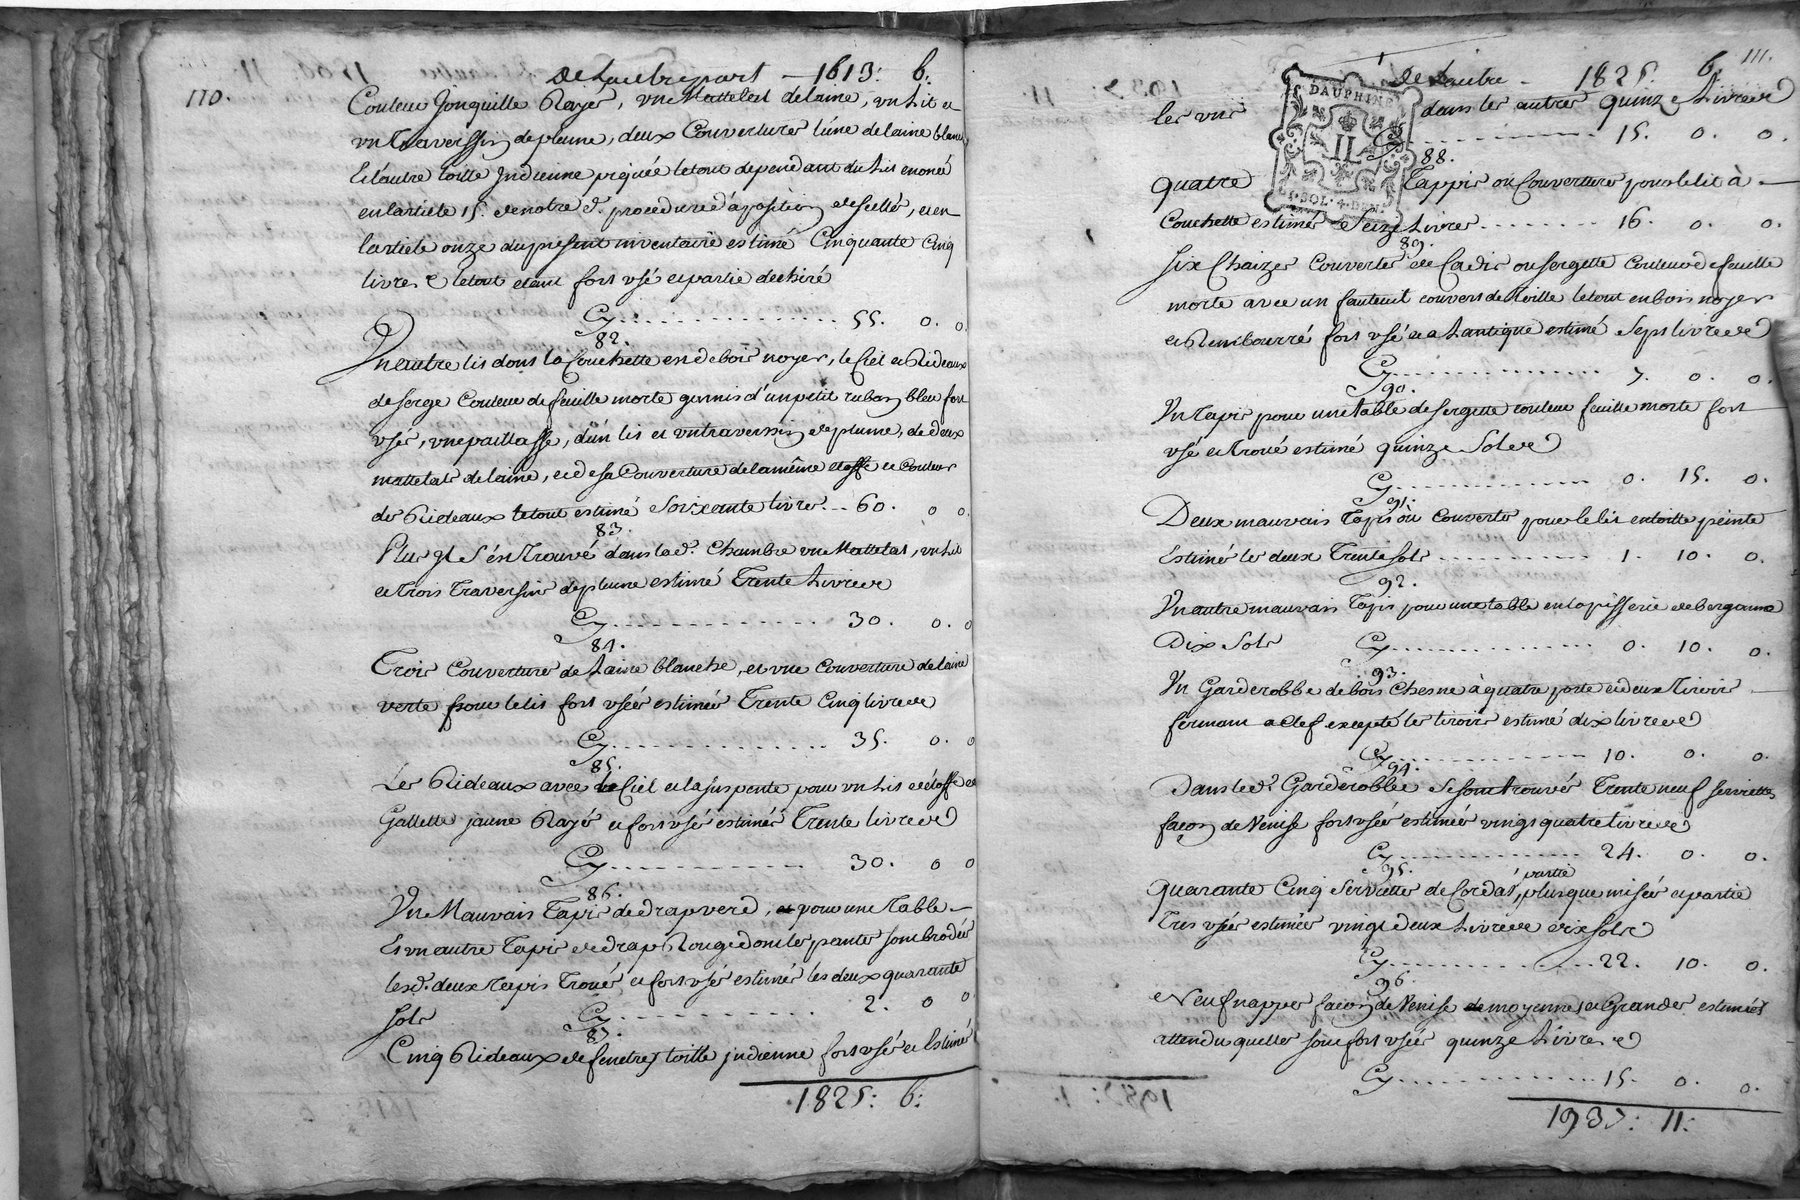 110.
de Lautre part — 1613: 6:
Couleur Jonquille Rayer, un Mattelat de laine, un Lit et
un Traverssin de plume, deux Couvertures l'une de laine blanche
Et l'autre toille Indienne piquée le tout dependant du Lit enoncé
en larticle 15. de notre d. procedure d'aposition de scellés, et en
larticle onze du present inventaire estimé Cinquante Cinq
livres le tout etant fort usé et partie dechiré
Cy . . . . . . . . 55. 0. 0
82.
Un autre lit dont la Couchette est de bois noyer, le Ciel et Rideaux
de serge Couleur de feuille morte garnis d'un petit ruban bleu fort
usés, une paillasse, d'un lit et un traverssin de plume, de deux
mattelats de laine, et de sa Couverture de la même etoffe et Couleur
des Rideaux le tout estimé Soixante livres . . 60. 0 0
83.
Plus Il s'est Trouvé dans la d. Chambre un Mattelat, un Lit
et Trois Traversins de plume estimé Trente Livres
Cy . . . . . . . . 30. 0. 0
84.
Trois Couvertures de Laine blanche, et une Couverture de laine
verte pour le lit fort usées estimées Trente Cinq livres
Cy . . . . . . . . 35. 0. 0
85.
Les Rideaux avec le Ciel et la suspente pour un Lit d'étoffe de
Gallette jaune Rayés et fort usés estimés Trente livres
Cy . . . . . . . . 30. 0 0
86.
Un Mauvais Tapis de drap verd, pour une Table —
Et un autre Tapis de drap Rouge dont les pantes sont brodées
les d. deux Tapis Troués et fort usés estimés les deux quarante
sols Cy . . . . . . . . 2. 0 0
87.
Cinq Rideaux de fenetres toille indienne fort usés et Estimés
1825: 6:
111.
de Lautre — 1825. 6.
DAUPHINÉ
II
1. SOL. 4. DEN.
les uns dans les autres quinze Livres
Cy . . . . . . . . 15. 0. 0.
88.
quatre Tappis ou Couvertures pour le lit à —
Couchette estimés Seize Livres . . . . . . . . 16. 0. 0.
89.
Six Chaizes Couvertes de Cadis ou sergette Couleur de feuille
morte avec un fauteuil couvert de Toille le tout en bois noyer
et Rembourré fort usé et a Lantique estimé Sept livres
Cy . . . . . . . . 7. 0. 0.
90.
Un Tapis pour une table de sergette couleur feuille morte fort
usé et Troué estimé quinze Sols
Cy . . . . . . . . 0. 15. 0.
91.
Deux mauvais Tapis ou Couvertes pour le lit en toille peinte
Estimés les deux Trente sols . . . . . . . . 1. 10. 0.
92.
Un autre mauvais Tapis pour une table en tapisserie de bergamme
Dix Sols Cy . . . . . . . . 0. 10. 0.
93.
Un Garderobbe de bois Chesne à quatre porte et deux Tiroirs —
fermant a Clef excepté les tiroirs estimé dix livres
Cy . . . . . . . . 10. 0. 0.
94.
Dans le d. Garderobbe se sont trouvés Trente neuf serviettes
façon de Venise fort usées estimées vingt quatre livres
Cy . . . . . . . . 24. 0. 0.
95.
quarante Cinq Serviettes de Cordat, partie plus que misées et partie
Tres usées estimées vingt deux Livres dix sols
Cy . . . . . . . . 22. 10. 0.
96.
Neuf nappes façon de Venise moyennes et Grandes estimées
attendu quelles sont fort usées quinze Livres
Cy . . . . . . . . 15. 0. 0.
1937: 11: